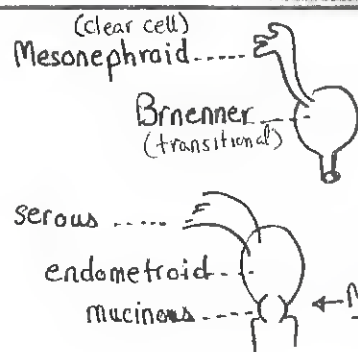 (clear cell)
Mesonephroid
Brnenner
(transitional)
serous
endometroid
mucinous